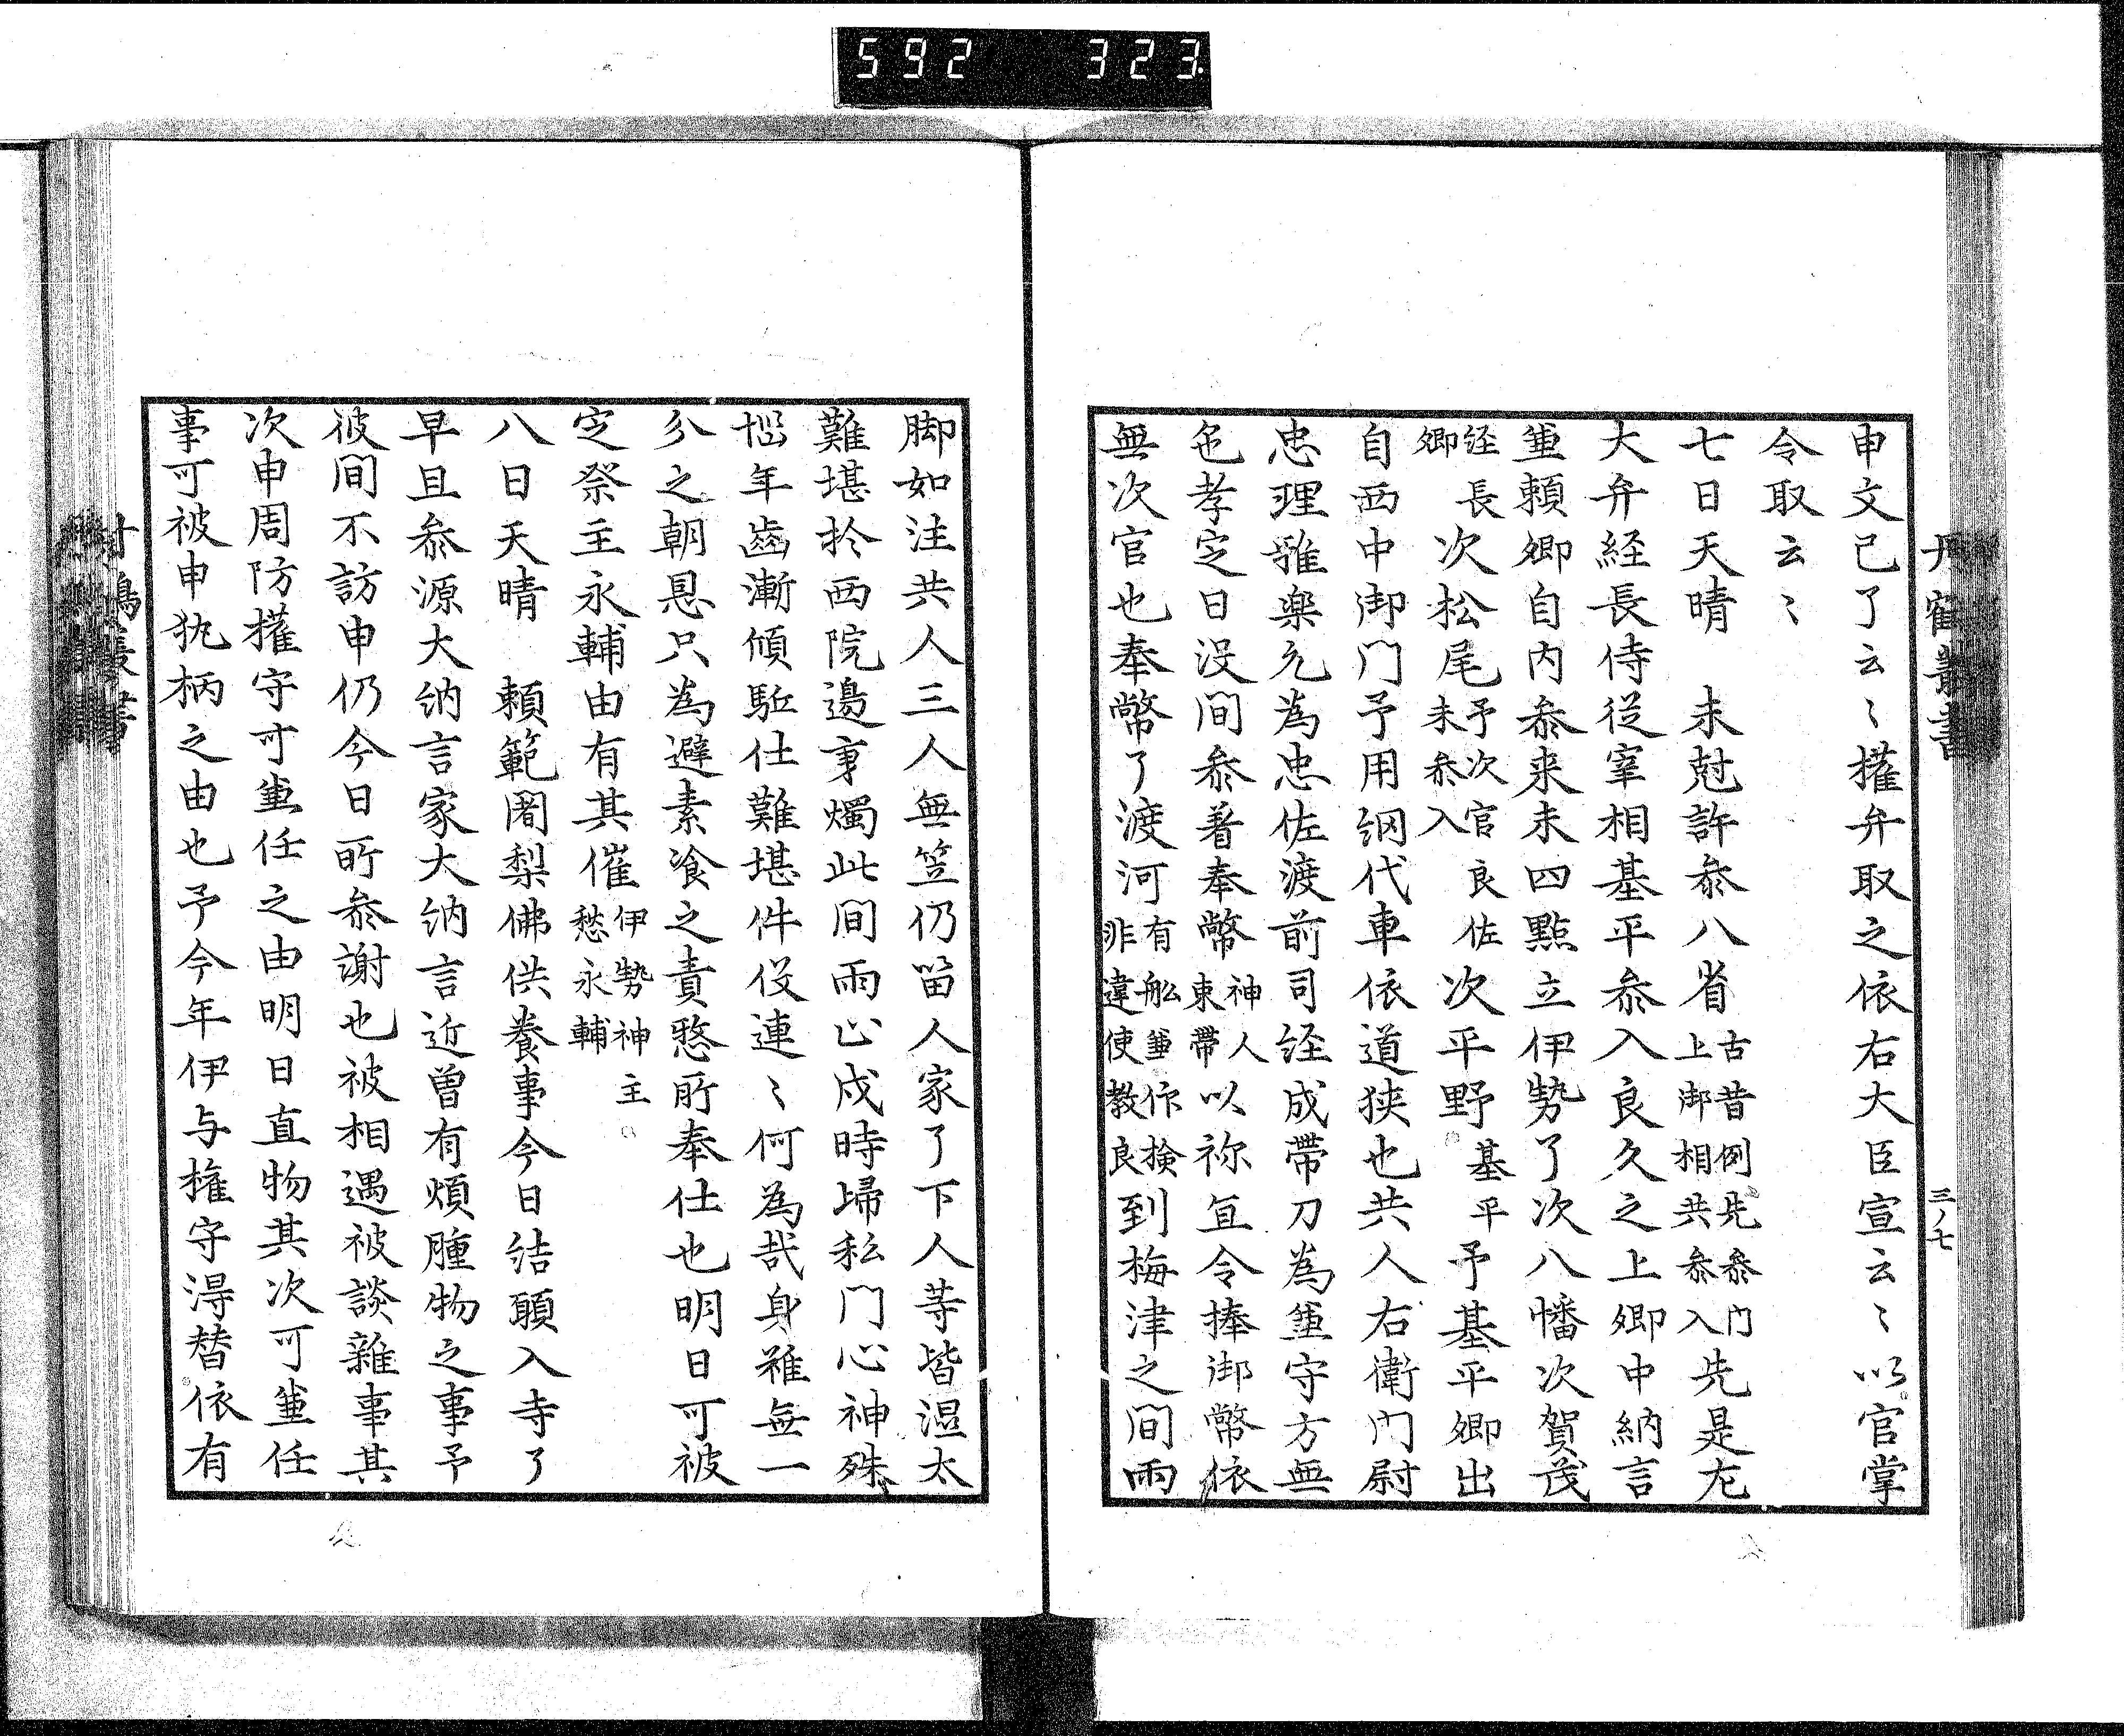 592 323
丹鶴叢書
三ノ七
申文已了云〻權弁取之依右大臣宣云〻以官掌
令取云〻
七日天晴 未尅許参八省古昔例先参门上卿相共参入先是左
大弁経長侍従宰相基平参入良久之上卿中納言
兼頼卿自内参来未四點立伊勢了次八幡次賀茂
経長卿次松尾予次官良佐未参入次平野基平予基平卿出
自西中御门予用網代車依道狭也共人右衛门尉
忠理雅楽允為忠佐渡前司経成帯刀為兼守方無
官孝定日没間参着奉幣神人束帯以祢宜令捧御幣依
無次官也奉幣了渡河有舩兼作檢非違使教良到梅津之間雨
脚如注共人三人無笠仍留人家了下人等皆湿太
難堪於西院邉乗燭此間雨止戌時帰私门心神殊
悩年齒漸傾駈仕難堪件役連〻何為哉身雖無一
分之朝恩只為避素飡之責愗所奉仕也明日可被
定祭主永輔由有其催伊勢神主愁永輔
八日天晴 頼範闍梨佛供養事今日結願入寺了
早旦参源大納言家大納言近曽有煩腫物之事予
彼間不訪申仍今日所参謝也被相遇被談雑事其
次申周防權守可兼任之由明日直物其次可兼任
事可被申執柄之由也予今年伊与權守得替依有